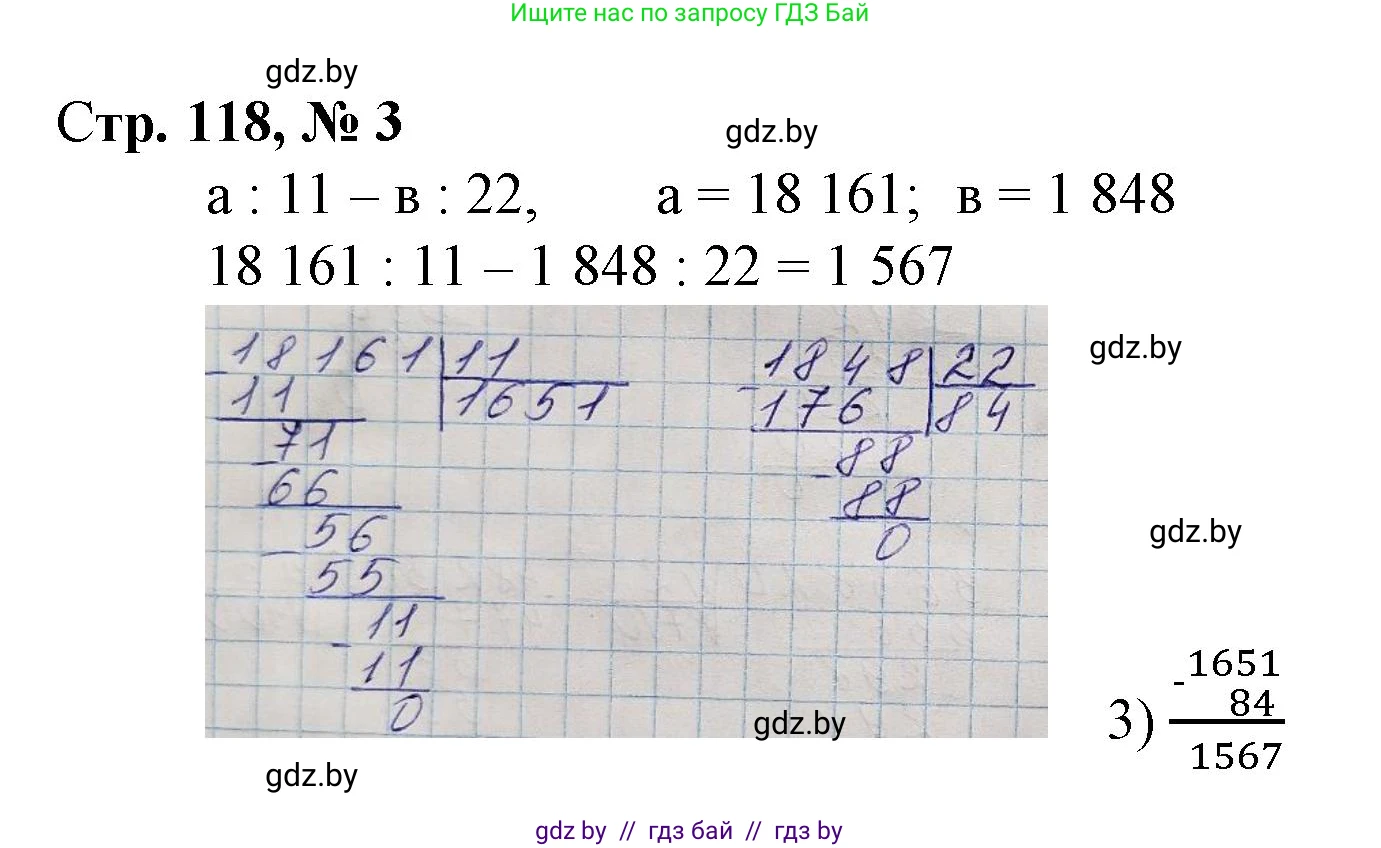 Ищите нас по запросу ГДЗ Бай
gdz.by
Стр. 118, № 3
gdz.by
а : 11 – в : 22, а = 18 161; в = 1 848
18 161 : 11 – 1 848 : 22 = 1 567
18161 11
- 11 1651
71
- 66
56
- 55
11
- 11
0
1848 22
- 176 84
88
- 88
0
gdz.by
gdz.by
3) - 1651
84
1567
gdz.by
gdz.by
gdz by // гдз бай // гдз by